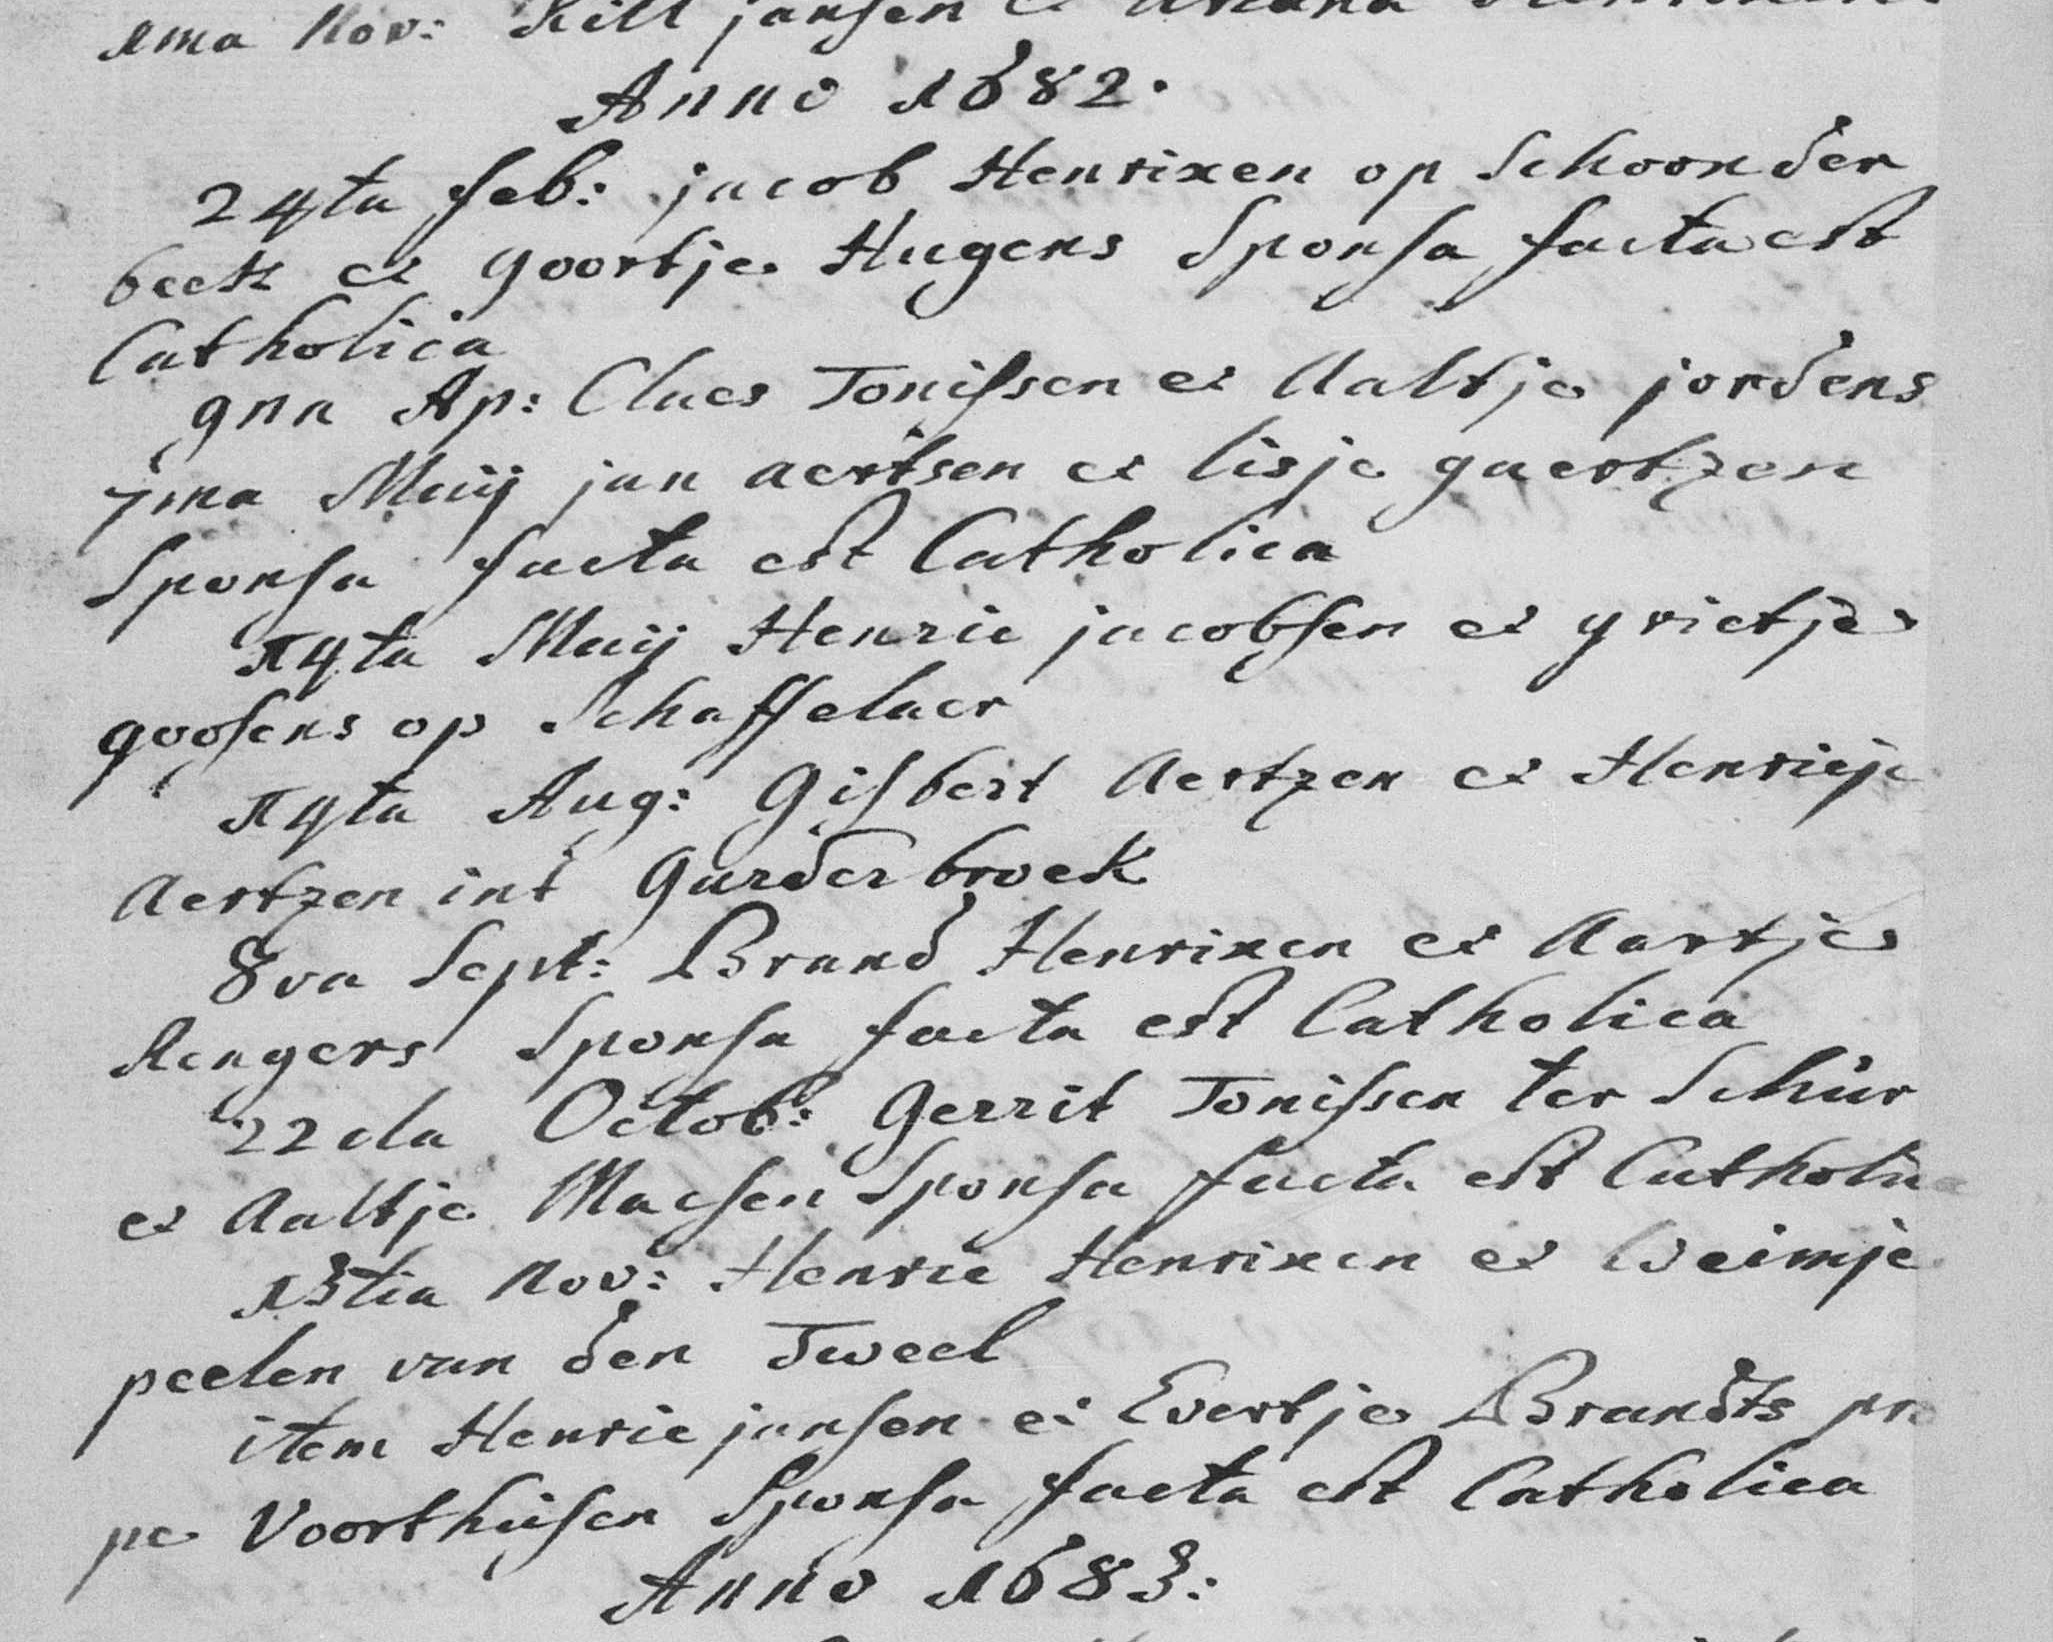 1ma Nov: Rikt jansen et
Anno 1682.
24ta feb: jacob Henrixen op Schoonder
beek et goortje Hugens Sponsa facta est
Catholica
9na Ap: Claes Tonissen et Aaltje jordens
7ma Maij jan aertsen et lisje gaertzen
Sponsa facta est Catholica
14ta Maij Henric jacobsen et grietje
goosens op Schaffelaer
14ta Aug: Gisbert Aertzen et Henricje
Aertzen int Garderbroek
8va Sept: Brand Henrixen et Aartje
Rengers Sponsa facta est Catholica
22da Octob: Gerrit Tonissen ter Schür
et Aaltje Maesen Sponsa facta est Catholica
13tia Nov: Henric Henrixen et Weimje
peelen van den Tweel
item Henric jansen et Evertje Brandts pro
pe Voorthüsen Sponsa facta est Catholica
Anno 1683: